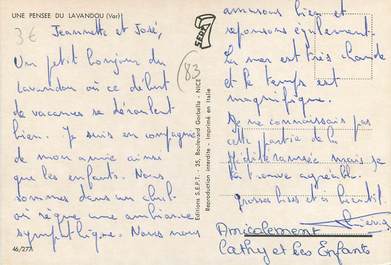 UNE PENSEE DU LAVANDOU (Var)
3€
Jeannette et José,
Un petit bonjour du
Lavandou où ce début
de vacances se déroulent
bien. Je suis en compagnie
de mon amie ainsi
que les enfants. Nous
sommes dans un club
où règne une ambiance
sympathique. Nous nous
46/277
S.E.P.T.
(83)
Editions S.E.P.T. - 35, Boulevard Gorbella - NICE
Reproduction interdite - Imprimé en Italie
amusons bien et
reposons également.
La mer est très chaude
et le temps est
magnifique.
Je ne connaissais pas
cette partie de la
Méditerranée mais je
la trouve agréable.
grosses bises et à bientôt
Amicalement
Cathy et les Enfants